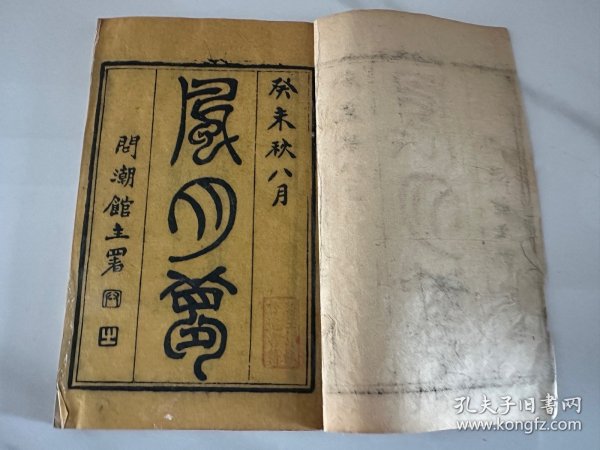 癸未秋八月
風月夢
問潮館主署
孔夫子旧书网
www.kongfz.com